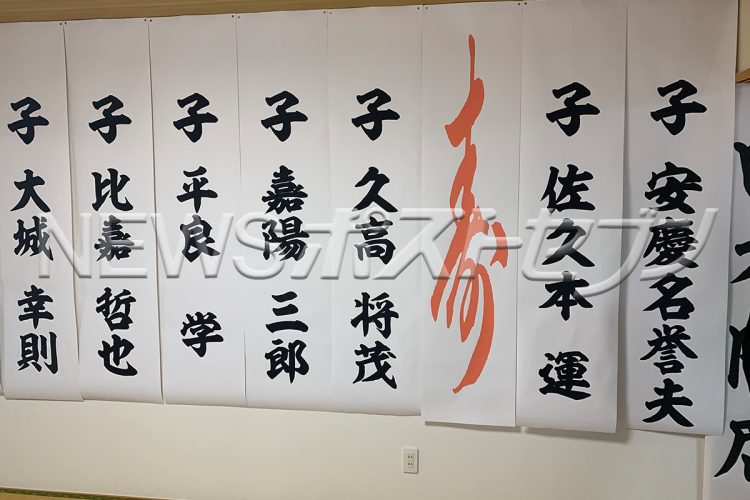 子 安慶名誉夫
子 佐久本 運
寿
子 久高 将茂
子 嘉陽 三郎
子 平良 学
子 比嘉 哲也
子 大城 幸則
NEWSポストセブン